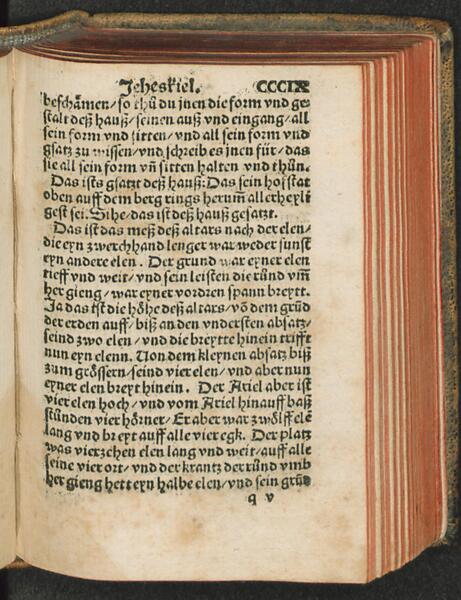 Jeheskiel. CCCIX
beschämen/so thů du jnen die form vnd ge⸗
stalt deß hauß/seinen auß vnd eingang/all
sein form vnd sitten/vnd all sein form vnd
gsatz zu wissen/vnd schreib es jnen für/das
sie all sein form vñ sitten halten vnd thün.
Das ists gsatzt deß hauß: Das sein hofstat
oben auff dem berg rings herum̃ allerheyli
gest sei. Sihe/das ist deß hauß gesatzt.
Das ist das meß deß altars nach der elen/
die eyn zwerchhand lenger war weder sunst
eyn andere elen. Der grund war eyner elen
tieff vnd weit/vnd sein leisten die ründ vm̃
her gieng/war eyner vordren spann breytt.
Ja das ist die höhe deß altars/võ dem grũd
der erden auff/biß an den vndersten absatz/
seind zwo elen/vnd die breytte hinein trifft
nun eyn elenn. Von dem kleynen absatz biß
zum grössern/seind vier elen/vnd aber nun
eyner elen breyt hinein. Der Ariel aber ist
vier elen hoch/vnd vom Ariel hinauff baß
stünden vier hörner/Er aber war zwölff elẽ
lang vnd breyt auff alle vier egk. Der platz
was vierzehen elen lang vnd weit/auff alle
seine vier ort/vnd der krantz der ründ vmb
her gieng hett eyn halbe elen/vnd sein grũd
q v